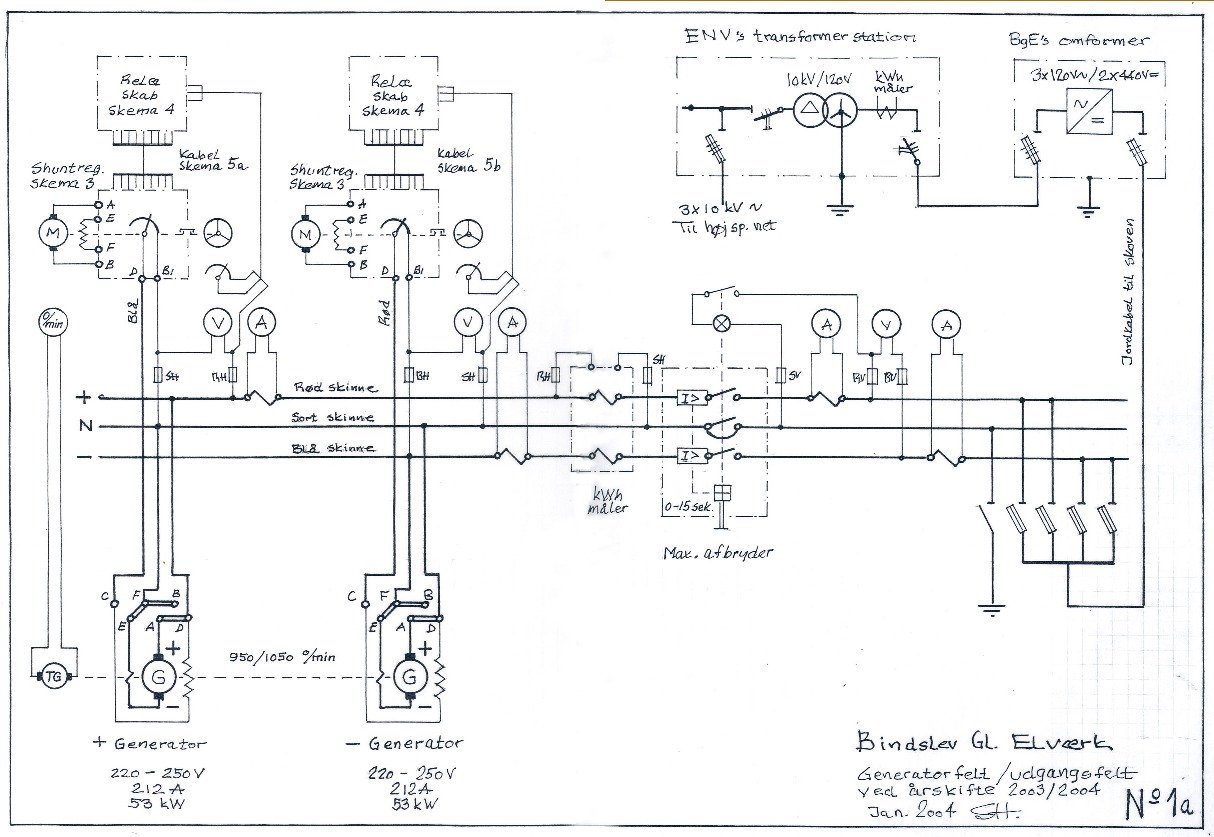 ENV's transformer station
BgE's omformer
Relæ
skab
skema 4
Relæ
skab
skema 4
10kV/120V
kWh
måler
3x120V~/2x440V=
~
=
Shuntreg.
skema 3
Kabel
skema 5a
Shuntreg.
skema 3
Kabel
skema 5b
A
E
F
B
M
D
B1
A
E
F
B
M
D
B1
3x10 kV ~
Til højsp. net
Jordkabel til skoven
Blå
Rød
o/min
V
A
V
A
A
V
A
SH
RH
BH
SH
RH
SH
SV
RV
BV
+
Rød skinne
I>
N
Sort skinne
−
Blå skinne
I>
kWh
måler
0-15 sek.
Max. afbryder
C
F
B
E
A
D
+
G
−
C
F
B
E
A
D
+
G
−
TG
950/1050 o/min
+ Generator
220 - 250V
212 A
53 kW
− Generator
220 - 250V
212A
53 kW
Bindslev Gl. Elværk
Generatorfelt/udgangsfelt
ved årskifte 2003/2004
Jan. 2004
Nº 1a